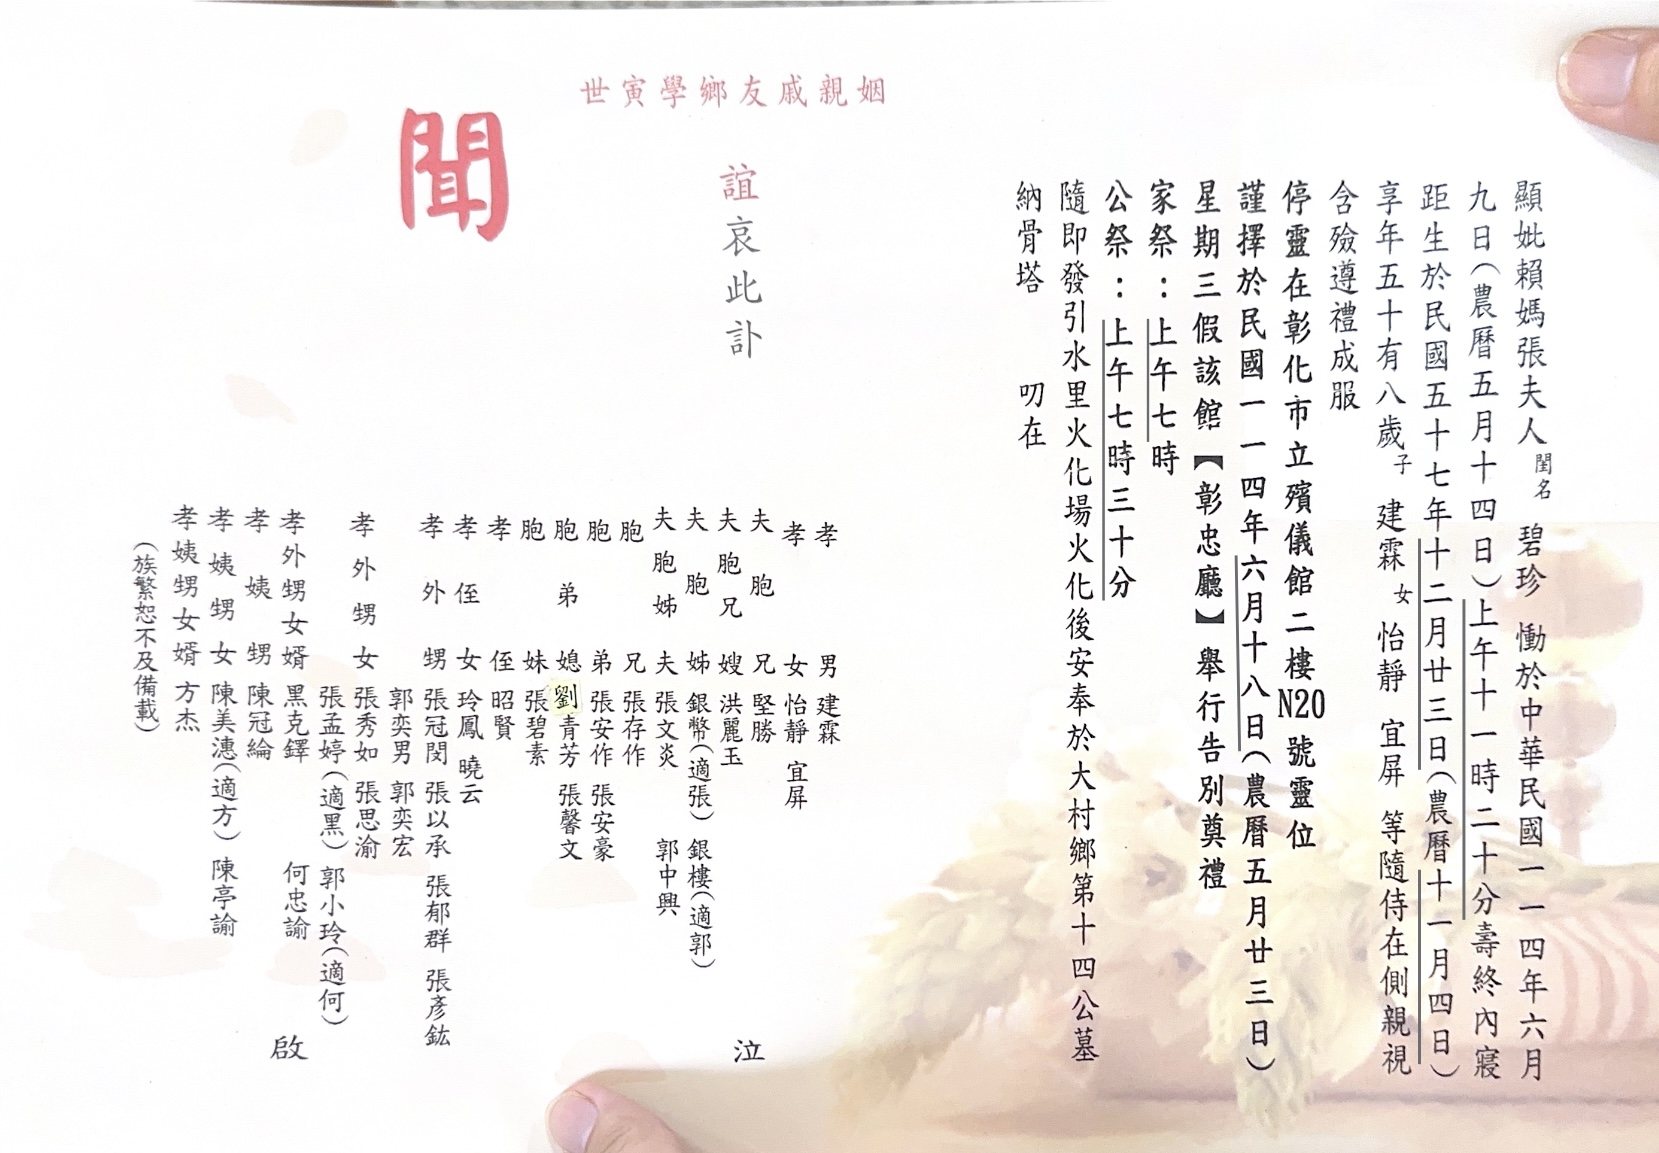 顯妣賴媽張夫人 閨名 碧珍 慟於中華民國一一四年六月
九日(農曆五月十四日)上午十一時二十分壽終內寢
距生於民國五十七年十二月廿三日(農曆十一月四日)
享年五十有八歲 子 建霖 女 怡靜 宜屏 等隨侍在側親視
含殮遵禮成服
停靈在彰化市立殯儀館二樓N20號靈位
謹擇於民國一一四年六月十八日(農曆五月廿三日)
星期三假該館【彰忠廳】舉行告別奠禮
家祭:上午七時
公祭:上午七時三十分
隨即發引水里火化場火化後安奉於大村鄉第十四公墓
納骨塔 叨在
姻親戚友鄉學寅世
誼哀此訃
聞
孝男 建霖
孝女 怡靜 宜屏
夫胞兄 堅勝
夫胞兄嫂 洪麗玉
夫胞姊 銀幣(適張) 銀樓(適郭)
夫胞姊夫 張文炎 郭中興
胞兄 張存作
胞弟 張安作 張安豪
胞弟媳 劉青芳 張馨文
胞妹 張碧素
孝侄 昭賢
孝侄女 玲鳳 曉云
孝外甥 張冠閔 張以承 張郁群 張彥鈜
郭奕男 郭奕宏
孝外甥女 張秀如 張思渝
張孟婷(適黑) 郭小玲(適何)
孝外甥女婿 黑克鐸 何忠諭
孝姨甥 陳冠綸
孝姨甥女 陳美潓(適方) 陳亭諭
孝姨甥女婿 方杰
(族繁恕不及備載)
泣
啟